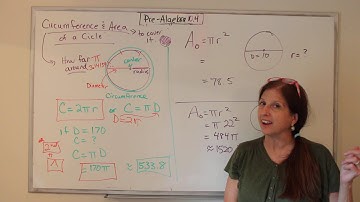 Pre-Algebra 10.4
Circumference & Area
of a Circle
to cover
it
How far
around
π
center
radius
Diameter
Circumference
C = 2πr or C = πD
D = 2r
if D = 170
C = ?
C = πD
= 170π ≈ 533.8
A₀ = πr²
=
= 78.5
D = 10
r = ?
A₀ = πr²
= π 22²
= 484π
≈ 1520